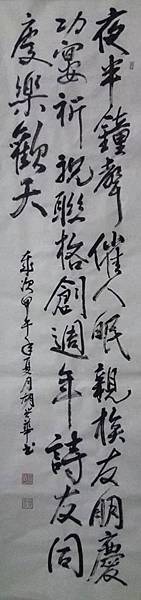 夜半鐘聲催人眠親族友朋慶
功宴祈祝聯格創週年詩友同
慶樂歡天
歲次甲午年夏月胡世華書